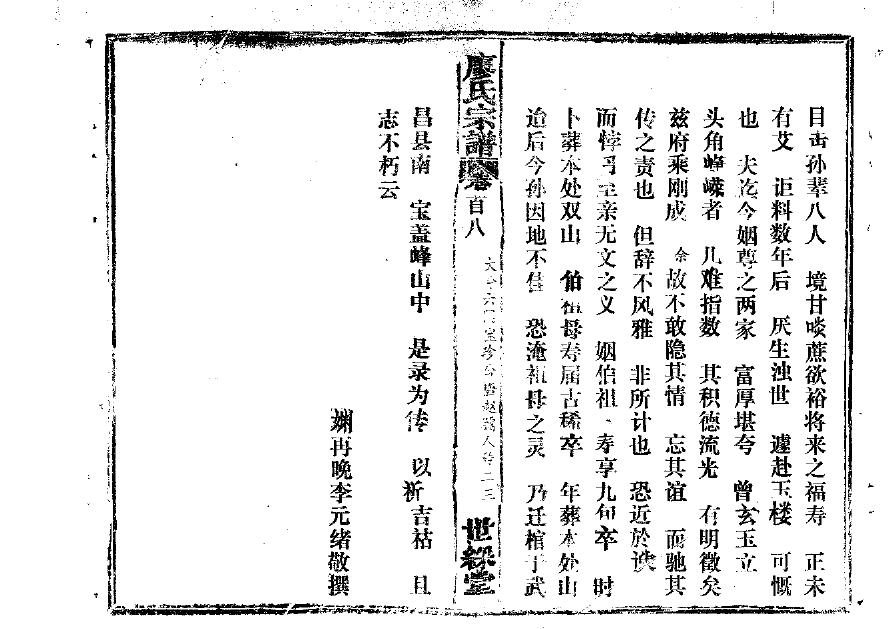 目击孙辈八人　境甘啖蔗欲裕将来之福寿　正未
有艾　讵料数年后　厌生浊世　遽赴玉楼　可慨
也　夫迄今姻尊之两家　富厚堪夸　曾玄玉立
头角峰嵘者　几难指数　其积德流光　有明徵矣
兹府乘刚成　余故不敢隐其情　忘其谊　而驰其
传之责也　但辞不风雅　非所计也　恐近於谀
而悖乎至亲无文之义　姻伯祖、寿享九旬卒　时
卜葬本处双山　伯祖母寿届古稀卒　年葬本处山
迨后今孙因地不佳　恐淹祖母之灵　乃迁棺于武
廖氏宗谱
卷首八
世綵堂
昌县南　宝盖峰山中　是录为传　以祈吉祜　且
志不朽云
姻再晚李元绪敬撰